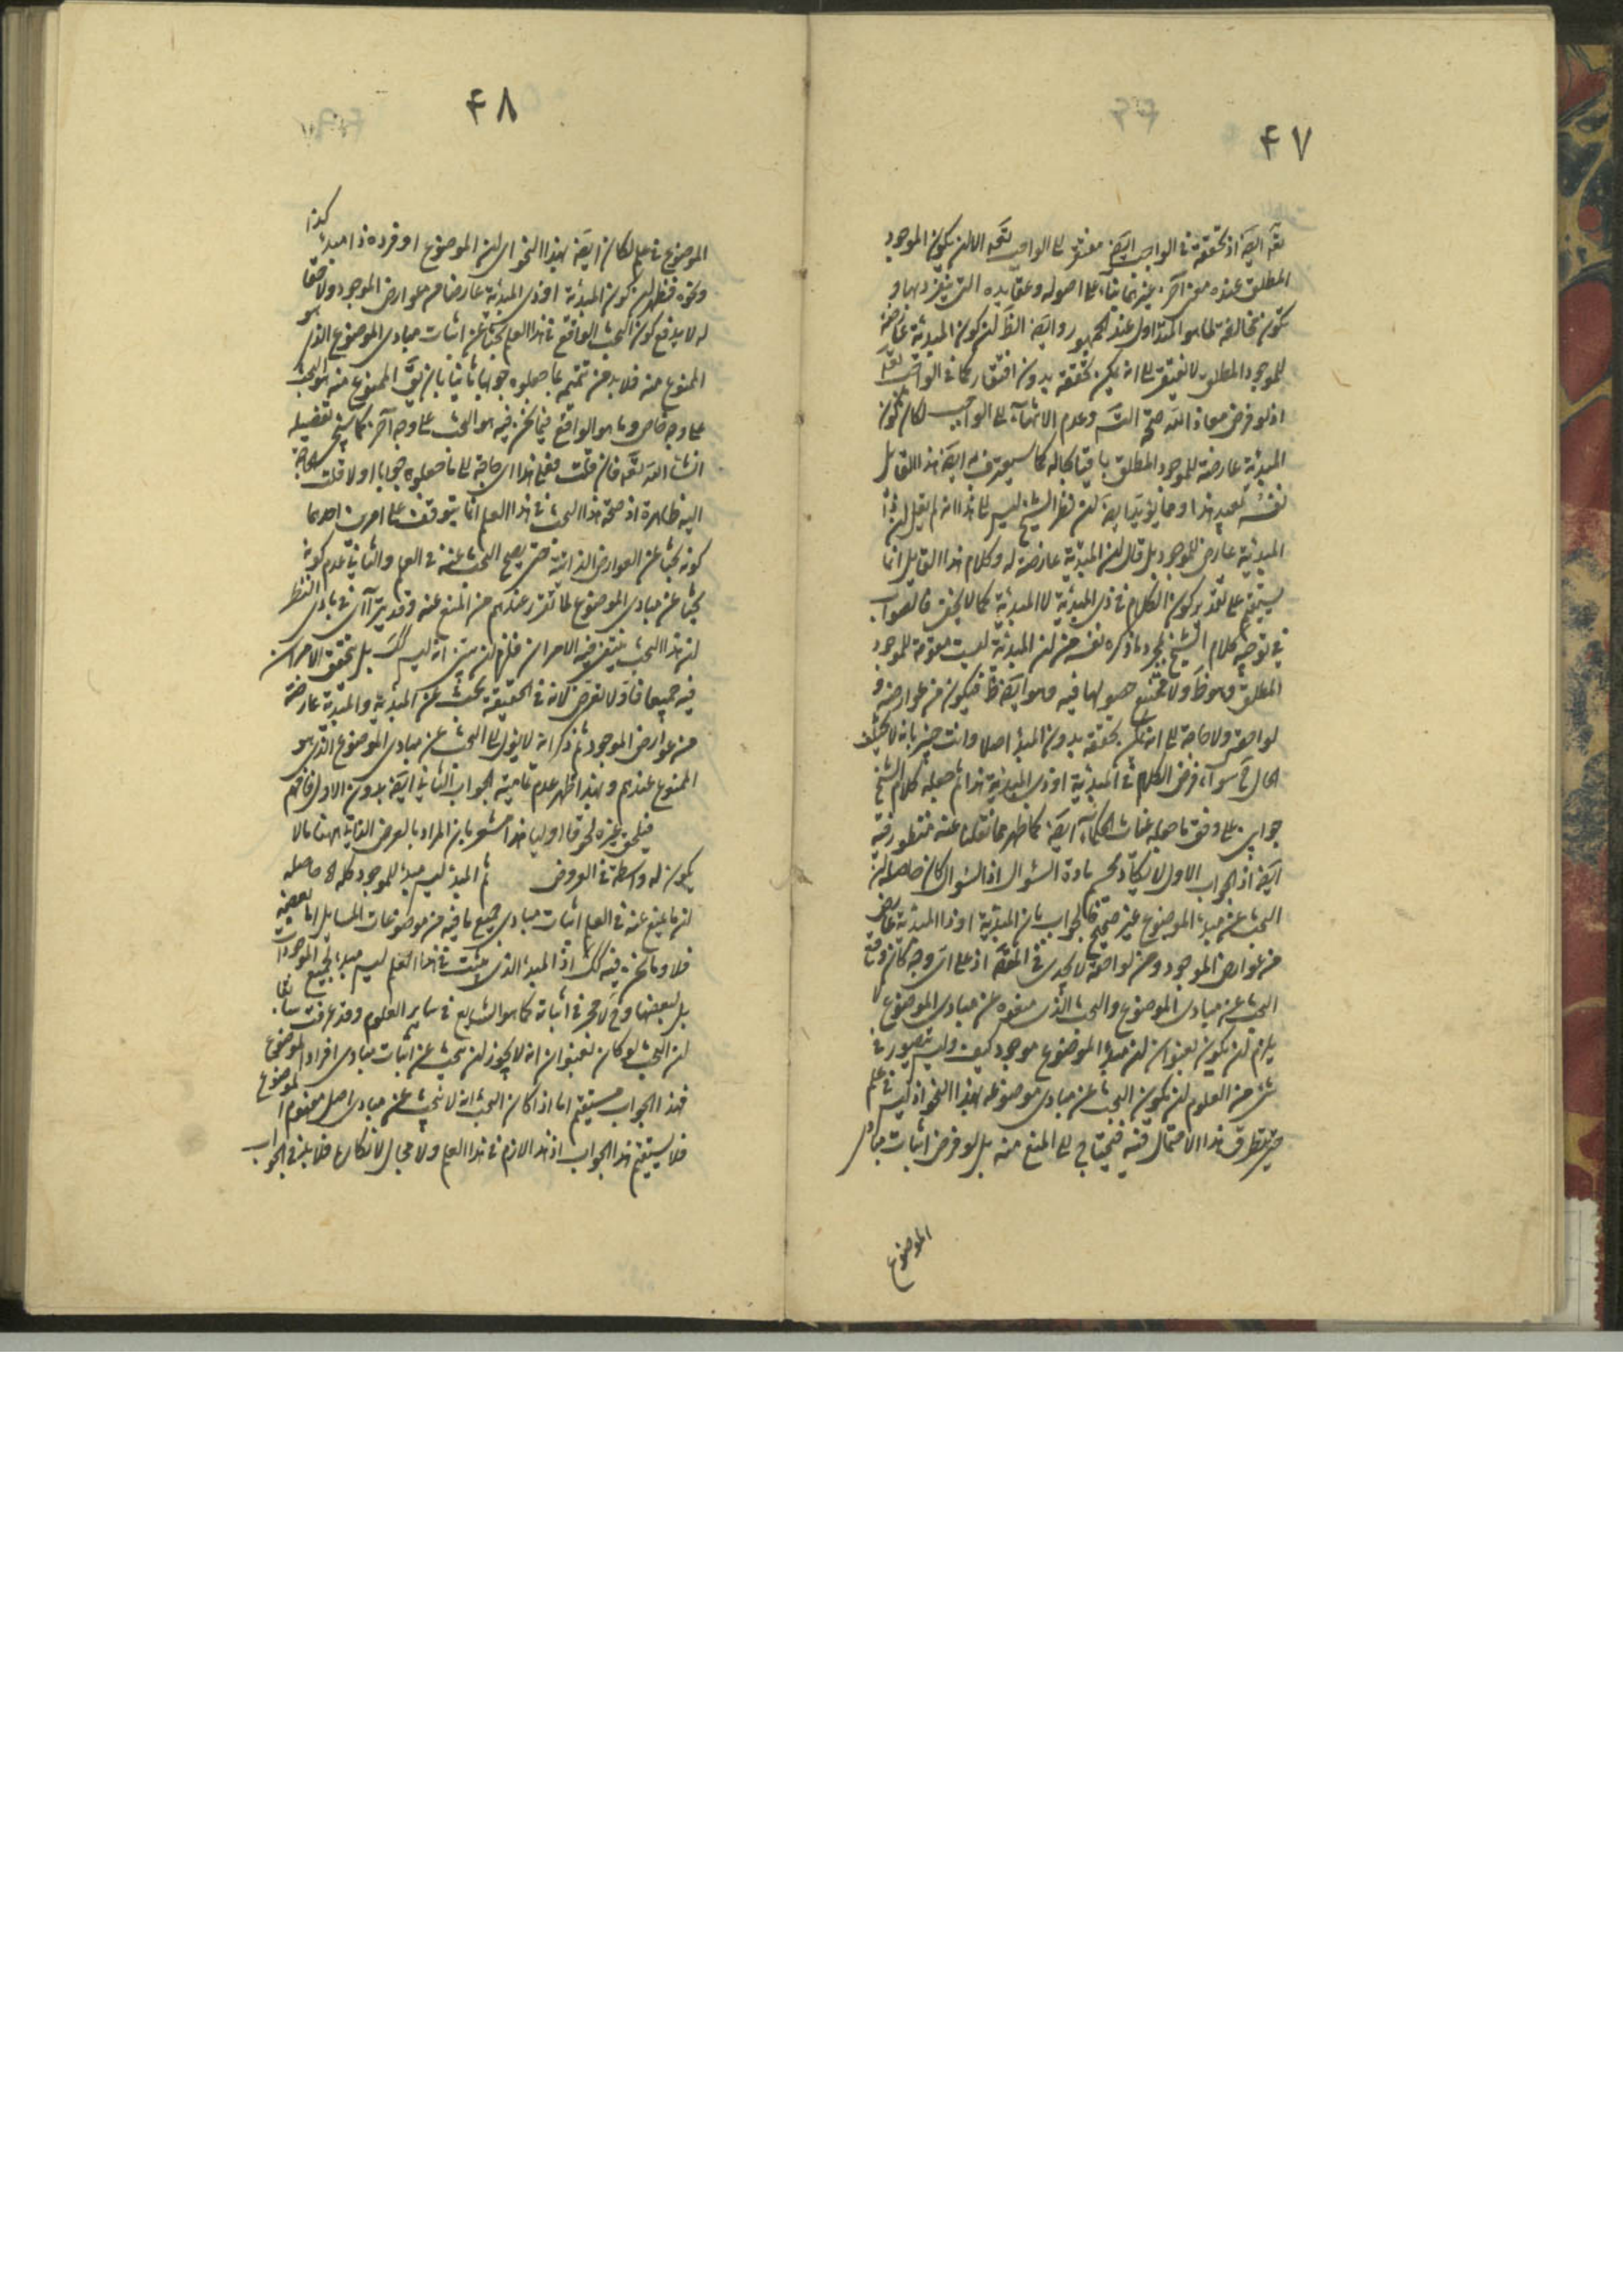 ۴۷
تعه ایضا اذ تحققه فی الواجب ایضا مفتقر الی الواجب تعه الا ان یکون الموجود
المطلق عنده معنی آخر غیرهما بناء علی اصوله وعقایده التی یتفرد بها و
یکون مخالفة لما هو المتداول عند الجمهور وایضا الظ ان کون المبدئیة عارضة
للموجود المطلق لا یفتقر الی انه یکون تحققه بدون افتقار کما فی الواجب تعه
اذ لو فرض معاذ الله صحة التس وعدم الانتهاء الی الواجب لکان کون
المبدئیة عارضة للموجود المطلق باقیا بحاله کما سیعترف به ایضا هذا القایل
نفسه بعید هذا ومما یؤید ایضا ان نظر الشیخ لیس الی هذا انه لم یقل ان ذا
المبدئیة عارض للموجود بل قال ان المبدئیة عارضة له وکلام هذا القایل انما
یستقیم علی تقدیر کون الکلام فی ذی المبدئیة لا المبدئیة کما لا یخفی فالصواب
فی توجیه کلام الشیخ مجرد ما ذکره نفسه من ان المبدئیة لیست مقومة للموجود
المطلق وهو ظ ولا ممتنع حصولها فیه وهو ایضا ظ فیکون من عوارضه و
لواحقه ولا حاجة الی انه یکون تحققه بدون المبدء اصلا وانت خبیر بانه لا یختلف
الحال ح سواء فرض الکلام فی المبدئیة او ذی المبدئیة هذا ثم جعله کلام الشیخ
جوابین علی وفق ما جعله غیاث الحکماء ایضا کما ظهر مما نقلنا عنه منظور فیه
ایضا اذ الجواب الاول لا یکاد یحسم مادة السئوال اذ السئوال کان حاصله ان
البحث عن مبدء الموضوع غیر صحیح فالجواب بان المبدئیة او ذا المبدئیة عارض
من عوارض الموجود ومن لواحقه لا یجدی فی المقام اذ علی ای وجه کان وقع
البحث عن مبادی الموضوع والبحث الذی منعوه عن مبادی الموضوع لا
یلزم ان یکون بعنوان ان مبدء الموضوع موجود کیف ولیس یتصور فی
شئ من العلوم ان یکون البحث عن مبادی موضوعه بهذا النحو اذ لیس فی علم
حتی یتطرق هذا الاحتمال فیه فیحتاج الی المنع منه بل لو فرض اثبات مبادی
الموضوع
۴۸
الموضوع فی علم لکان ایضا بهذا النحو ای ان الموضوع او فرده ذا مبدء کذا
ونحوه فظهر ان کون المبدئیة او ذی المبدئیة عارضا من عوارض الموجود ولاحقا
له لا یدفع کون البحث الواقع فی هذا العلم بحثا عن اثبات مبادی الموضوع الذی هو
الممنوع منه فلا بد من تتمیم ما جعلوه جوابا ثانیا بان یق الممنوع منه هو البحث
علی وجه خاص وما هو الواقع فیما نحن فیه هو البحث علی وجه آخر کما سیجئ تفصیله
انشاء الله تعه فان قلت فعلی هذا ای حاجة الی ما جعلوه جوابا اولا قلت الحاجة
الیه ظاهرة اذ صحة هذا البحث فی هذا العلم انما یتوقف علی امرین احدهما
کونه بحثا عن العوارض الذاتیة حتی یصح البحث عنه فی العلم والثانی عدم کونه
بحثا عن مبادی الموضوع لما تقرر عندهم من المنع عنه وقد یترآئ فی بادی النظر
ان هذا البحث ینتفی فیه الامران فلزمه ان یبین انه لیس کک بل یتحقق الامران
فیه جمیعا فاولا تعرض لانه فی الحقیقة بحث عن المبدئیة والمبدئیة عارضة
من عوارض الموجود ثم ذکر انه لا یؤل الی البحث عن مبادی الموضوع الذی هو
الممنوع عندهم وبهذا ظهر عدم تمامیة الجواب الثانی ایضا بدون الاول فافهم
فیلحق غیره لحوقا اولیا هذا مشعر بان المراد بالعرض الذاتی ههنا ما لا
یکون له واسطة فی العروض ثم المبدء لیس مبدء للموجود کله اه حاصله
ان ما یمنع عنه فی العلم اثبات مبادی جمیع ما فیه من موضوعات المسایل اما بعضه
فلا وما نحن فیه کک اذ المبدء الذی یثبت فی هذا العلم لیس مبدء لجمیع الموجودات
بل لبعضها وح لا حجر فی اثباته کما هو الشایع فی سایر العلوم وقد عرفت سابقا
ان البحث لو کان بعنوان انه لا یجوز ان یبحث عن اثبات مبادی افراد الموضوع
فهذا الجواب مستقیم اما اذا کان البحث انه لا یبحث عن مبادی اصل مفهوم الموضوع
فلا یستقیم هذا الجواب اذ هذا لازم فی هذا العلم ولا مجال لانکاره فلا بد فی الجواب